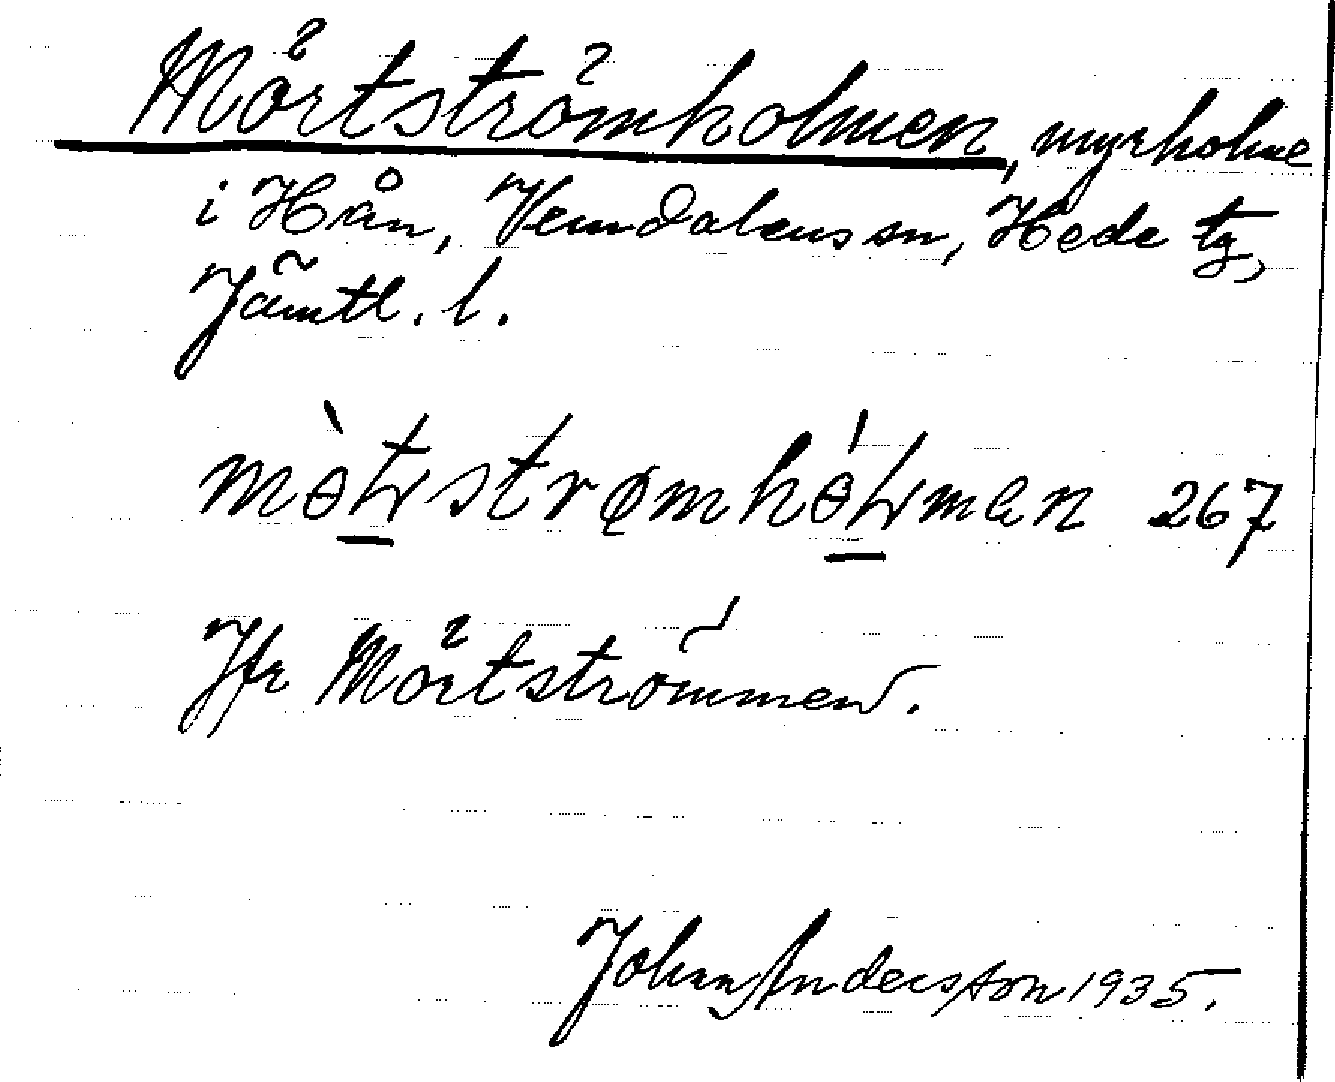 Mörtströmholmen, myrholme
i Hån, Vemdalens sn, Hede tg,
Jämtl. l.
267
Jfr Mörtströmmen.
John Andersson 1935.